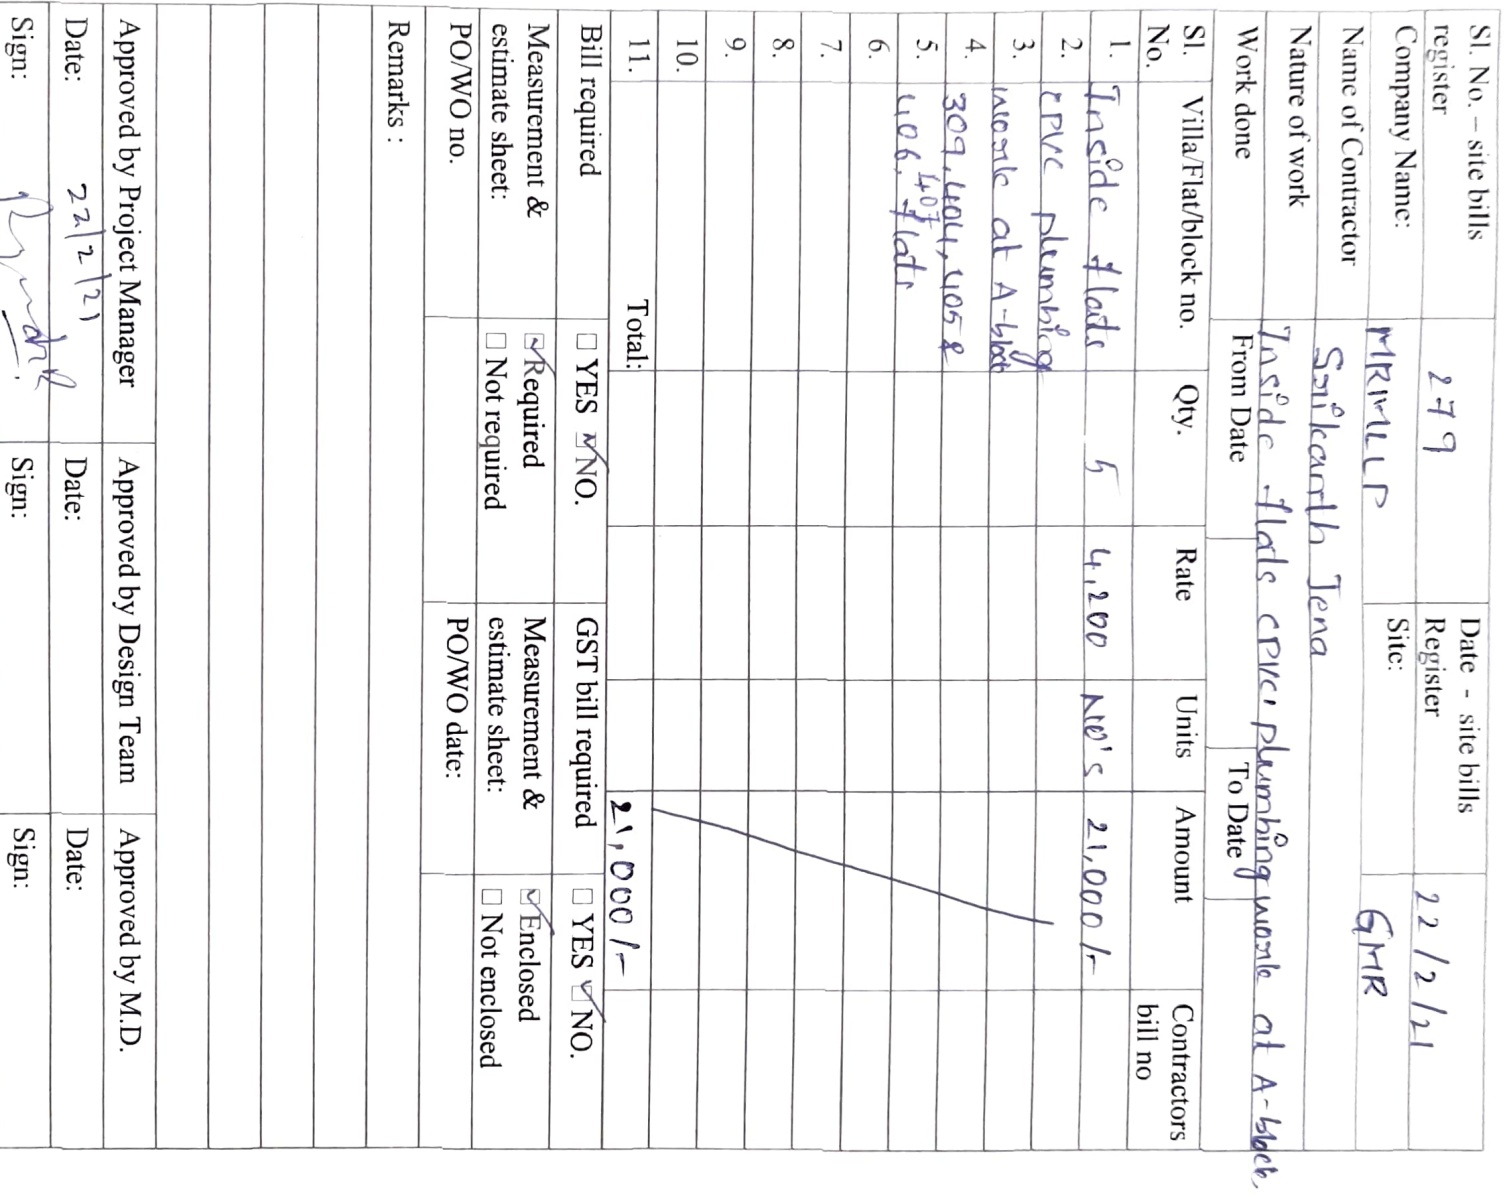 Sl. No. – site bills register 279 Date - site bills Register 22/2/21
Company Name: MRMLLP Site: GMR
Name of Contractor Srikanth Jena
Nature of work Inside flats CPVC plumbing work at A-block,
Work done From Date To Date
Sl. No. Villa/Flat/block no. Qty. Rate Units Amount Contractors bill no
1. Inside flats 5 4,200 No's 21,000/-
2. CPVC plumbing
3. work at A-block
4. 309, 404, 405 &
5. 406, 407 flats
6.
7.
8.
9.
10.
11. Total: 21,000/-
Bill required ☐ YES ☑ NO. GST bill required ☐ YES ☑ NO.
Measurement & estimate sheet: ☑ Required ☐ Not required Measurement & estimate sheet: ☑ Enclosed ☐ Not enclosed
PO/WO no. PO/WO date:
Remarks :
Approved by Project Manager Approved by Design Team Approved by M.D.
Date: 22/2/21 Date: Date:
Sign: Sign: Sign: